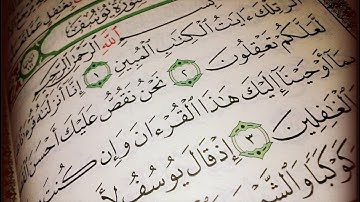 سُورَةُ يُوسُفَ
بِسْمِ اللَّهِ الرَّحْمَٰنِ الرَّحِيمِ
الٓر تِلْكَ ءَايَٰتُ الْكِتَٰبِ الْمُبِينِ ١ إِنَّا أَنزَلْنَٰهُ
لَّعَلَّكُمْ تَعْقِلُونَ ٢ نَحْنُ نَقُصُّ عَلَيْكَ أَحْسَنَ
بِمَآ أَوْحَيْنَآ إِلَيْكَ هَٰذَا الْقُرْءَانَ وَإِن كُنتَ
الْغَٰفِلِينَ ٣ إِذْ قَالَ يُوسُفُ
كَوْكَبًا وَالشَّمْسَ